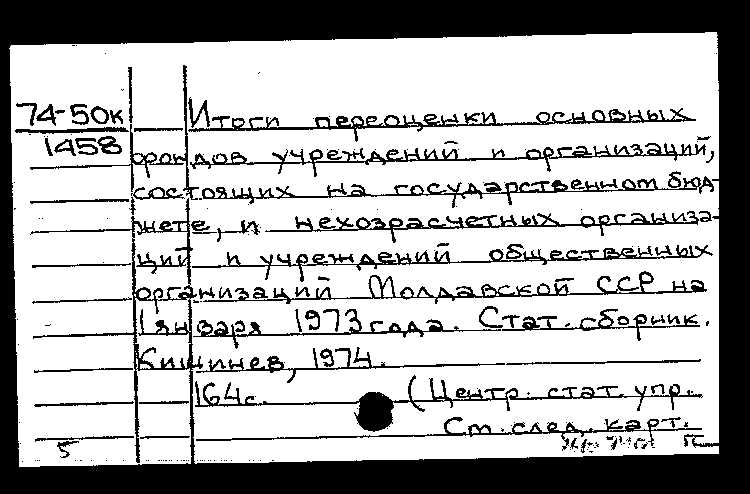 74-50к
1458
Итоги переоценки основных
фондов учреждений и организаций,
состоящих на государственном бюд-
жете, и нехозрасчетных организа-
ций и учреждений общественных
организаций Молдавской ССР на
1 января 1973 года. Стат. сборник.
Кишинев, 1974.
164с. (Центр. стат. упр.
См. след. карт.
5